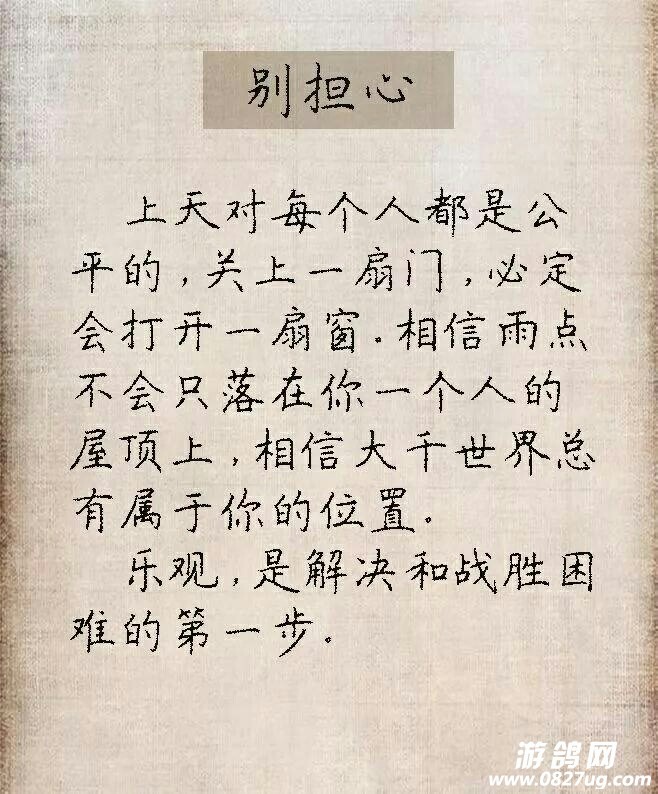 别担心
上天对每个人都是公
平的,关上一扇门,必定
会打开一扇窗.相信雨点
不会只落在你一个人的
屋顶上,相信大千世界总
有属于你的位置。
乐观,是解决和战胜困
难的第一步.
游鸽网
www.0827ug.com